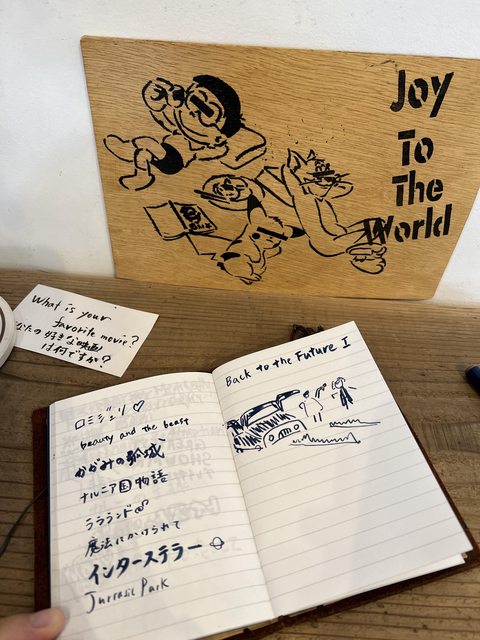 Joy
To
The
World
What is your
favorite movie?
なたの好きな映画
は何ですか?
ロミジュリ♡
beauty and the beast
かがみの孤城
ナルニア国物語
ララランド
魔法にかけられて
インターステラー
Jurrasic Park
Back to the Future I